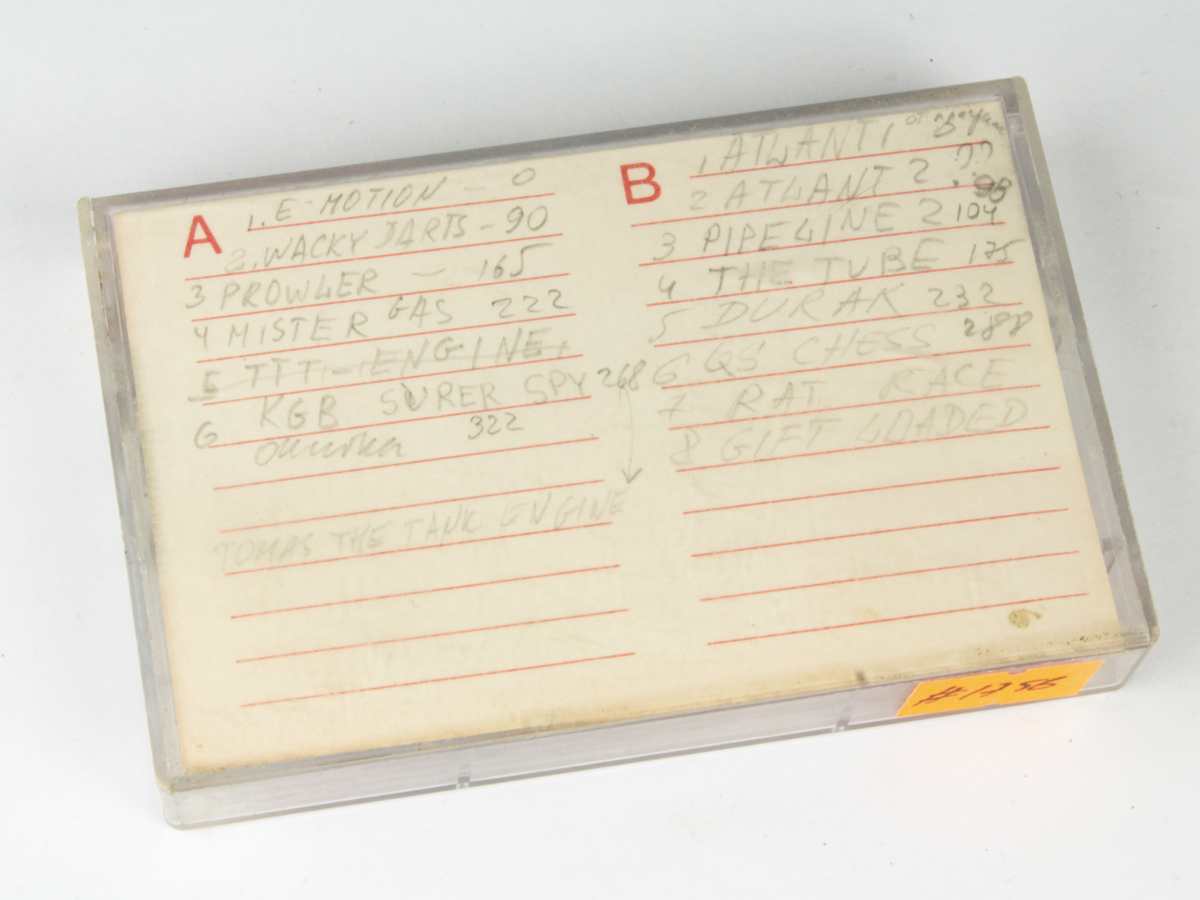 A
1. E-MOTION - 0
2. WACKY DARTS - 90
3 PROWLER - 165
4 MISTER GAS 222
5 TTT - ENGINE
KGB SUPER SPY 268
6 ошибка 322
TOMAS THE TANK ENGINE
B
1 ATLANT 1
2 ATLANT 2
3 PIPELINE 2 104
4 THE TUBE 175
5 DURAK 232
6 QS CHESS 288
7 RAT RACE
8 GIFT LOADED